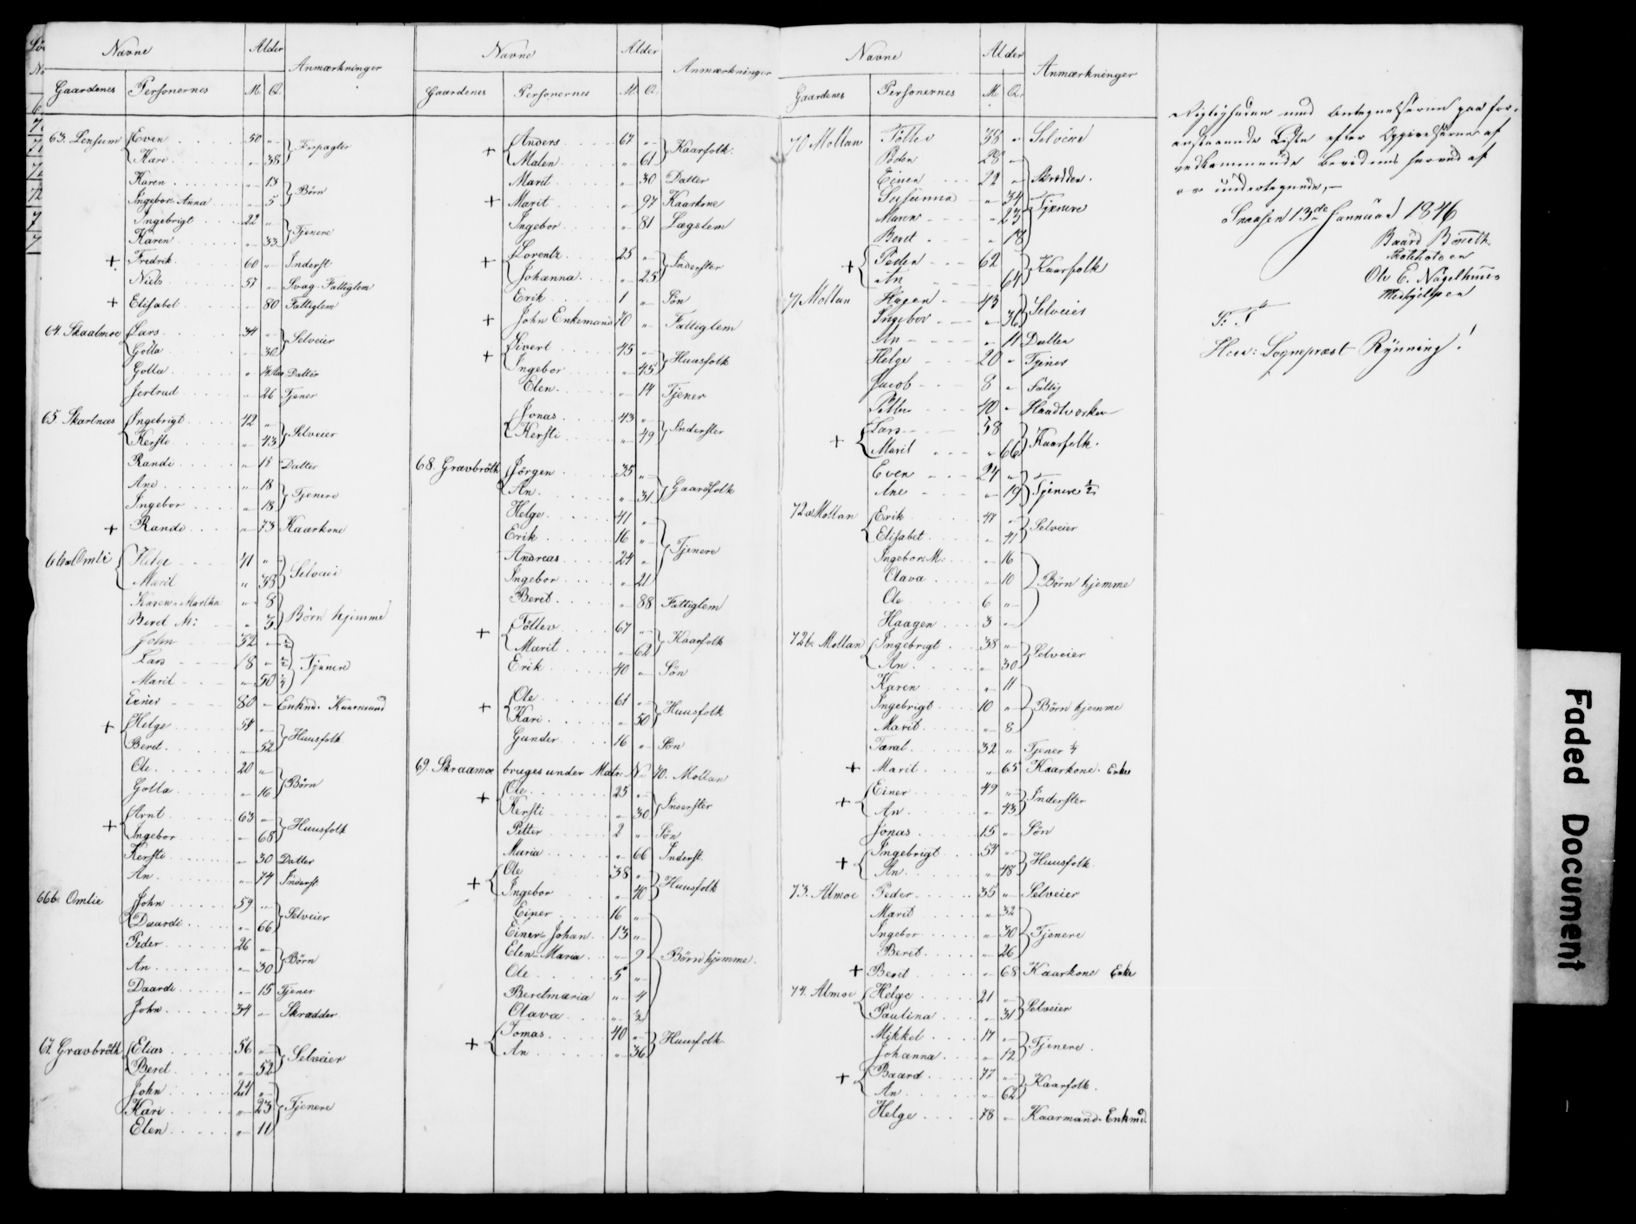 Navne Alder Anmærkninger
Gaardenes Personernes M. Q.
63. Lensum Even 50 "
Kari " 38 Forpagter
Karen " 13
Ingebor Anna " 5 Børn
Ingebrigt 22 "
Karen " 33 Tjenere
+ Fredrik 60 " Inderst
Niels 57 " Svag. Fattiglem
+ Elisabet " 80 Fattiglem
64. Skaalmoe Lars 34 "
Golla " 30 Selveier
Golla " Datter
Jertrud " 26 Tjener
65 Ingebrigt 42 "
Kersti " 43 Selveier
Randi " 15 Datter
Ane " 18
Ingebor " 18 Tjenere
+ Randi " 73 Kaarkone
66a Omli Helge 41 "
Marit " 33 Selveier
Karen Martha " 8
Beret M: " 3 Børn hjemme
John 32 "
Lars 18 " Tjenere
Marit " 50
Einer 80 " Enkmd. Kaarmand
+ Helge 54 "
Beret " 52 Huusfolk
Ole 20 "
Golla " 16 Børn
+ Arnt 63 "
Ingebor " 68 Huusfolk
Kersti " 30 Datter
An " 74 Inderst
66b. Omlie John 59 "
Daardi " 66 Selveier
Peder 26 "
An " 30 Børn
Daardi " 15 Tjener
John 34 " Skrædder
67. Gravbröth Elias 56 "
Beret " 52 Selveier
John 24 "
Kari " 23 Tjenere
Elen " 11
Navne Alder Anmærkninger
Gaardenes Personernes M. Q.
+ Anders 67 "
Malen " 61 Kaarfolk.
Marit " 30 Datter
+ Marit " 97 Kaarkone
Ingebor " 81 Lægslem
+ Lorentz 25 "
Johanna " 25 Inderster
Erik 1 " Søn
+ John Enkemand 70 " Fattiglem
+ Sivert 45 "
Ingebor " 45 Huusfolk
Elen " 14 Tjener
Jonas 43 "
Kersti " 49 Inderster
68. Gravbröth Jörgen 35 "
An " 31 Gaardfolk
Helge 41 "
Erik 16 "
Andreas 24 " Tjenere
Ingebor " 21
Berit " 88 Fattiglem
+ Tollev 67 "
Marit " 62 Kaarfolk
Erik 40 " Søn
+ Ole 61 "
Kari " 50 Huusfolk
Gunder 16 " Søn
69. Skraamoe bruges under Matr. No. 70. Moltan
+ Ole 25 "
Kersti " 30 Inderster
Petter 2 " Søn
Maria " 66 Inderst.
+ Ole 38 "
Ingebor " 40 Huusfolk
Einer 16 "
Einer Johan 13 "
Elen Maria " 9 Børn hjemme.
Ole 5 "
Beretmaria " 4
Olava " 2
+ Tomas 40 "
An " 36 Huusfolk
Navne Alder Anmærkninger
Gaardenes Personernes M. Q.
70 Moltan Tollev 35 " Selveier
Peder 28 "
Einer 22 " Skrædder.
Susanna " 34
Maren " 23 Tjenere
Beret " 18
+ Peder 62
An " 64 Kaarfolk
71 Moltan Hagen 43
Ingebor " 36 Selveier
An " 11 Datter
Helge 20 " Tjener
Jacob 8 " Fattig
Petter 40 " Haandverker
+ Lars 58
Marit " 66 Kaarfolk.
Even 24 "
Ane " 19 Tjenere 1/2
72a Moltan Erik 47 "
Elisabet " 41 Selveier
Ingebor M: " 16
Olava " 10 Børn hjemme
Ole 6 "
Haagen 3 "
72b. Moltan Ingebrigt 38 "
An " 30 Selveier
Karen " 11
Ingebrigt 10 " Børn hjemme
Marit " 8
Taral 32 " Tjener
+ Marit " 65 Kaarkone. Enke
+ Einer 49 "
An " 43 Inderster
Jonas 15 " Søn
+ Ingebrigt 54 "
An " 48 Huusfolk
73. Almoe Peder 35 " Selveier
Marit " 32
Ingebor " 30 Tjenere
Berit " 26
+ Beret " 68 Kaarkone Enke
74. Almoe Helge 21 "
Paulina " 31 Selveier
Mikkel 17 "
Johanna " 12 Tjenere.
+ Baard 77 "
An " 62 Kaarfolk.
Helge 78 " Kaarmand. Enkmd.
Rigtigheden med Antegnelserne paa for-
anstaaende Liste efter Opgivelserne af
vedkommende bevidnes herved af
os undertegnede,-
Snaasen 13de Januar 1846
Baard
Ole E. Nagelhuus
Medhjelper
S. T.
Herr: Sognepræst Rynning!
Faded Document